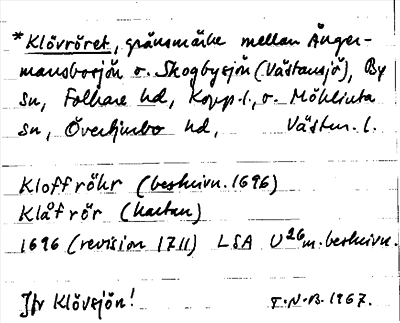 *Klövröret, gränsmärke mellan Änger-
mansbosjön o. Skogbysjön (Västansjö), By
sn, Folkare hd, Kopp. l., o. Möklinta
sn, Övertjurbo hd, Västm. l.
Kloffröhr (beskrivn. 1696)
Klåf rör (kartan)
1696 (revision 1711) LSA U26 m. beskrivn.
Jfr Klövsjön! T.N.B. 1967.